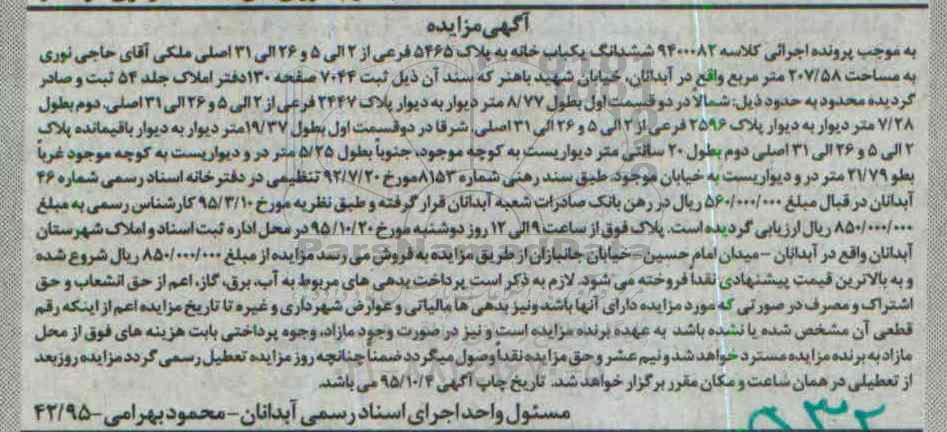 آگهی مزایده
به موجب پرونده اجرائی کلاسه ۹۴۰۰۰۸۲ ششدانگ یکباب خانه به پلاک ۵۴۶۵ فرعی از ۲ الی ۵ و ۲۶ الی ۳۱ اصلی ملکی آقای حاجی نوری
به مساحت ۲۰۷/۵۸ متر مربع واقع در آبدانان، خیابان شهید باهنر که سند آن ذیل ثبت ۷۰۴۴ صفحه ۱۳۰ دفتر املاک جلد ۵۴ ثبت و صادر
گردیده محدود به حدود ذیل: شمالاً در دو قسمت اول بطول ۸/۷۷ متر دیوار به دیوار پلاک ۲۴۴۷ فرعی از ۲ الی ۵ و ۲۶ الی ۳۱ اصلی. دوم بطول
۷/۲۸ متر دیوار به دیوار پلاک ۲۵۹۶ فرعی از ۲ الی ۵ و ۲۶ الی ۳۱ اصلی. شرقا در دوقسمت اول بطول ۱۹/۳۷ متر دیوار به دیوار باقیمانده پلاک
۲ الی ۵ و ۲۶ الی ۳۱ اصلی دوم بطول ۲۰ سانتی متر دیواریست به کوچه موجود، جنوباً بطول ۵/۲۵ متر در و دیواریست به کوچه موجود غرباً
بطو ۲۱/۷۹ متر در و دیواریست به خیابان موجود. طبق سند رهنی شماره ۸۱۵۳ مورخ ۹۲/۷/۲۰ تنظیمی در دفترخانه اسناد رسمی شماره ۴۶
آبدانان در قبال مبلغ ۵۶۰/۰۰۰/۰۰۰ ریال در رهن بانک صادرات شعبه آبدانان قرار گرفته و طبق نظریه مورخ ۹۵/۳/۱۰ کارشناس رسمی به مبلغ
۸۵۰/۰۰۰/۰۰۰ ریال ارزیابی گردیده است. پلاک فوق از ساعت ۹ الی ۱۲ روز دوشنبه مورخ ۹۵/۱۰/۲۰ در محل اداره ثبت اسناد و املاک شهرستان
آبدانان واقع در آبدانان - میدان امام حسین - خیابان جانبازان از طریق مزایده به فروش می رسد مزایده از مبلغ ۸۵۰/۰۰۰/۰۰۰ ریال شروع شده
و به بالاترین قیمت پیشنهادی نقداً فروخته می شود. لازم به ذکر است پرداخت بدهی های مربوط به آب، برق، گاز، اعم از حق انشعاب و حق
اشتراک و مصرف در صورتی که مورد مزایده دارای آنها باشد ونیز بدهی ها مالیاتی و عوارض شهرداری و غیره تا تاریخ مزایده اعم از اینکه رقم
قطعی آن مشخص شده یا نشده باشد به عهده برنده مزایده است و نیز در صورت وجود مازاد، وجوه پرداختی بابت هزینه های فوق از محل
مازاد به برنده مزایده مسترد خواهد شد و نیم عشر و حق مزایده نقداً وصول میگردد ضمناً چنانچه روز مزایده تعطیل رسمی گردد مزایده روز بعد
از تعطیلی در همان ساعت و مکان مقرر برگزار خواهد شد. تاریخ چاپ آگهی ۹۵/۱۰/۴ می باشد.
مسئول واحد اجرای اسناد رسمی آبدانان - محمود بهرامی - ۴۲/۹۵
ParsNamadData